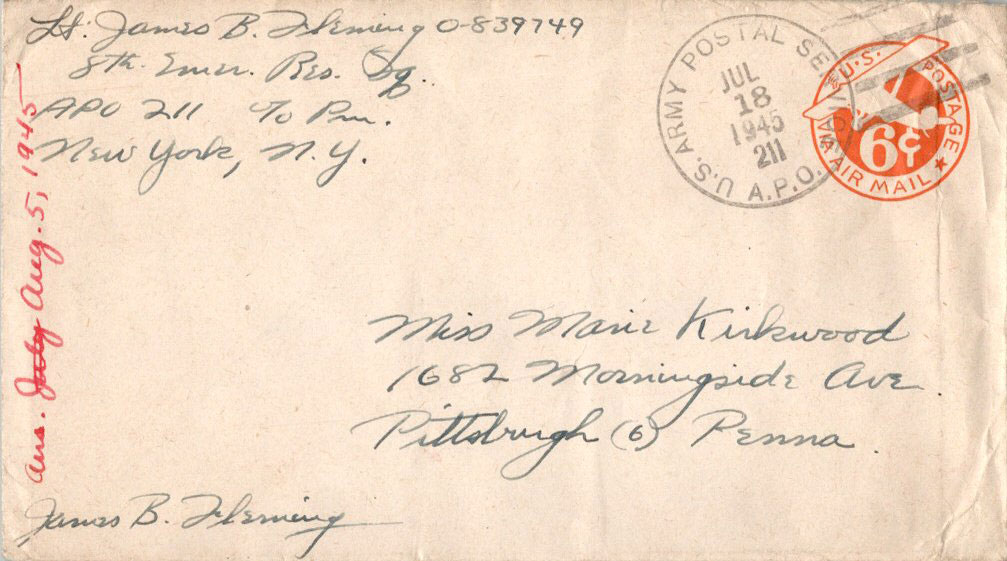 Lt. James B. Fleming O-839749
8th. Emer. Res. Sq.
APO 211 c/o Pm.
New York, N.Y.
U.S. ARMY POSTAL SERVICE
JUL
18
1945
211
A.P.O.
U.S. POSTAGE
6¢
VIA AIR MAIL
Ans. July Aug. 5, 1945
Miss Marie Kirkwood
1682 Morningside Ave
Pittsburgh (6) Penna.
James B. Fleming